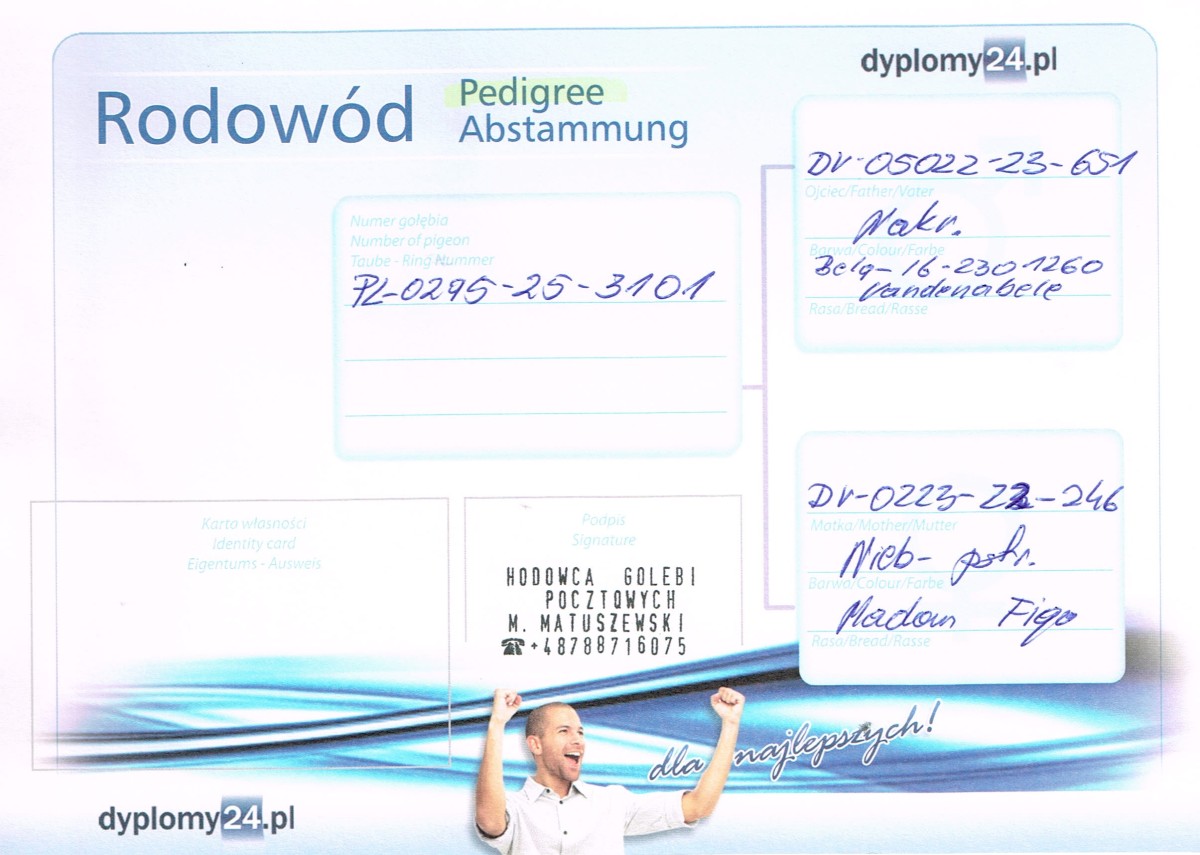 dyplomy24.pl
Rodowód
Pedigree
Abstammung
DV-05022-23-651
Ojciec/Father/Vater
Nakr.
Barwa/Colour/Farbe
Belg-16-2301260
Vandenabele
Rasa/Bread/Rasse
Numer gołębia
Number of pigeon
Taube - Ring Nummer
PL-0295-25-3101
DV-0223-22-246
Matka/Mother/Mutter
Nieb- pstr.
Barwa/Colour/Farbe
Madam Figo
Rasa/Bread/Rasse
Karta własności
Identity card
Eigentums - Ausweis
Podpis
Signature
HODOWCA GOLEBI
POCZTOWYCH
M. MATUSZEWSKI
☎+48788716075
dla najlepszych!
dyplomy24.pl